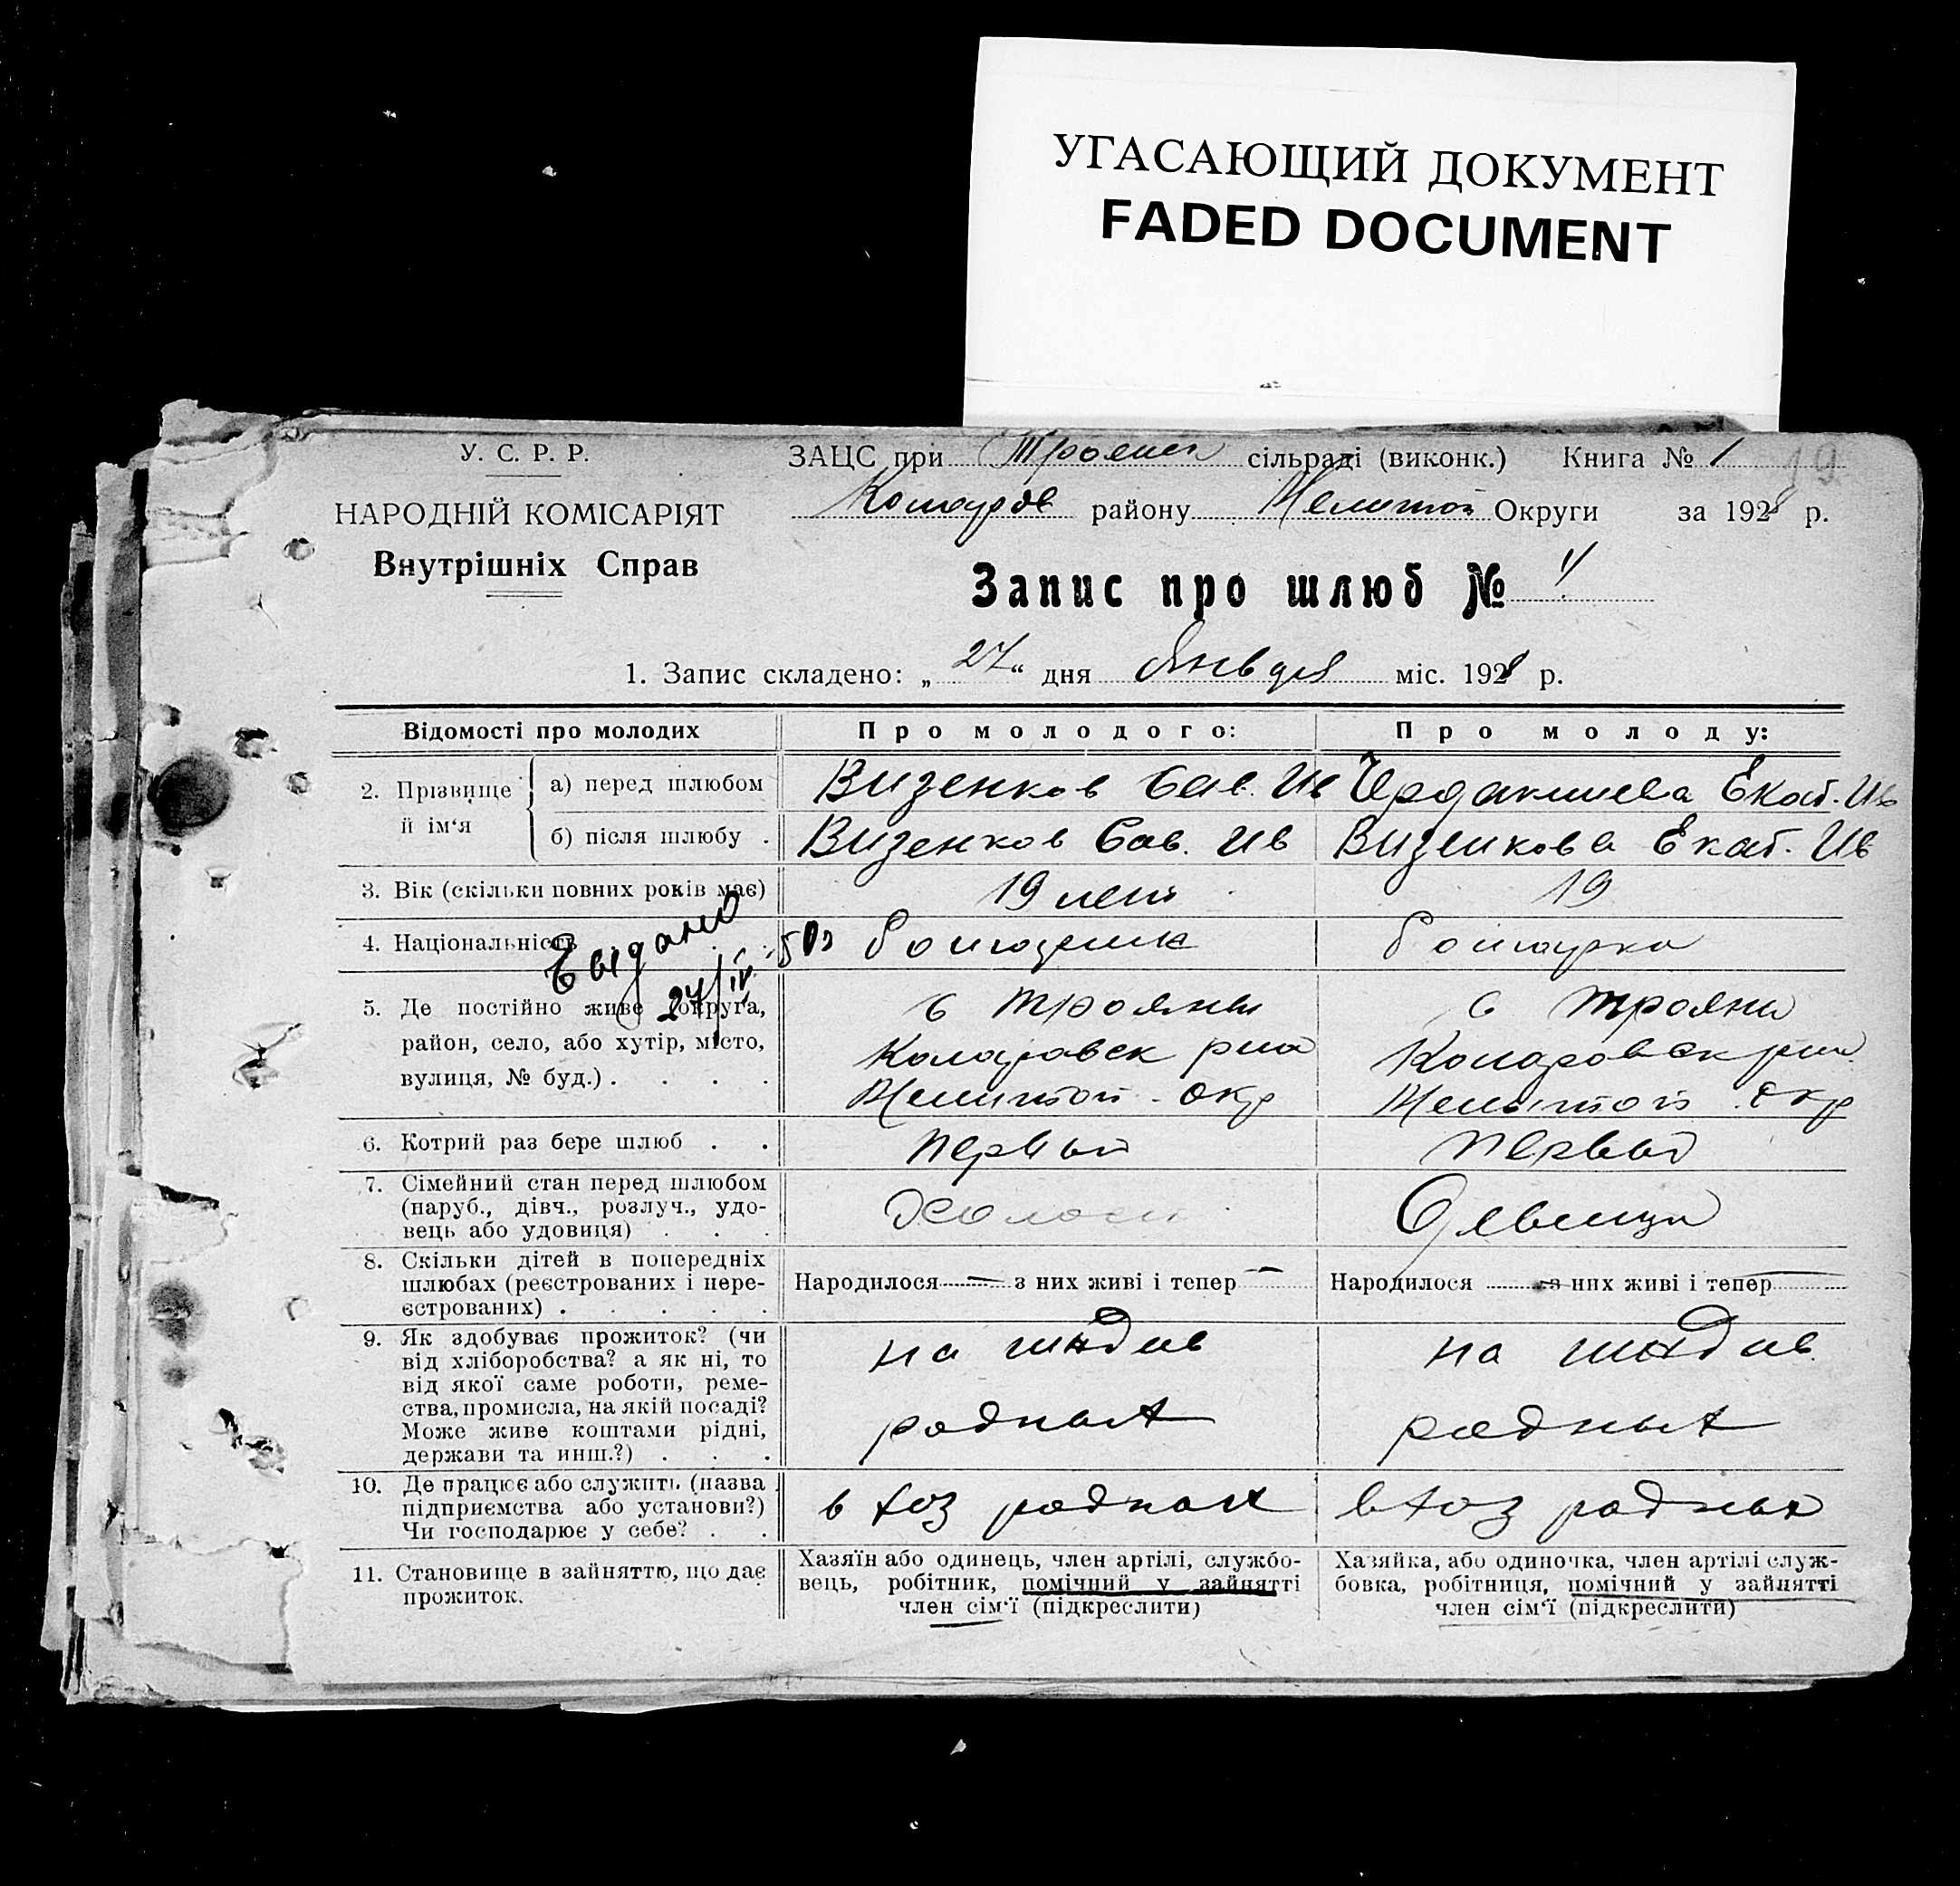 УГАСАЮЩИЙ ДОКУМЕНТ
FADED DOCUMENT
У. С. Р. Р.
НАРОДНІЙ КОМІСАРІЯТ
Внутрішніх Справ
ЗАЦС при Троянск сільраді (виконк.) Книга № 1 19
району Мелитоп Округи за 1928 р.
Запис про шлюб № 4
1. Запис складено: „ 27 “ дня Января міс. 1928 р.
Відомості про молодих Про молодого: Про молоду:
2. Прізвище й ім‘я
а) перед шлюбом Визенков Сав. Ив Екат. Ив
б) після шлюбу . Визенков Сав. Ив Визенкова Екат. Ив
3. Вік (скільки повних років має) 19 лет 19
4. Національність
Видано 27/IV 50
5. Де постійно живе (округа, с Трояны с Трояны
район, село, або хутір, місто, Коларовск р-на Коларовск р-на
вулиця, № буд.) . . . . Мелитоп. окр Мелитоп. окр
6. Котрий раз бере шлюб . . Первый Первый
7. Сімейний стан перед шлюбом
(наруб., дівч., розлуч., удо-
вець або удовиця) . . . Холост Девица
8. Скільки дітей в попередніх
шлюбах (реєстрованих і нере-
єстрованих) . . . . .
Народилося — з них живі і тепер —
Народилося — з них живі і тепер —
9. Як здобуває прожиток? (чи
від хліборобства? а як ні, то
від якої саме роботи, реме-
ства, промисла, на якій посаді?
Може живе коштами рідні,
держави та инш.?) . . .
на иждив
родных
на иждив.
родных
10. Де працює або служить (назва
підприємства або установи?)
Чи господарює у себе? . .
в хоз родных
в хоз родных
11. Становище в зайняттю, що дає
прожиток.
Хазяїн або одинець, член артілі, службо-
вець, робітник, помічний у зайнятті
член сім‘ї (підкреслити)
Хазяйка, або одиночка, член артілі служ-
бовка, робітниця, помічний у зайнятті
член сім‘ї (підкреслити)